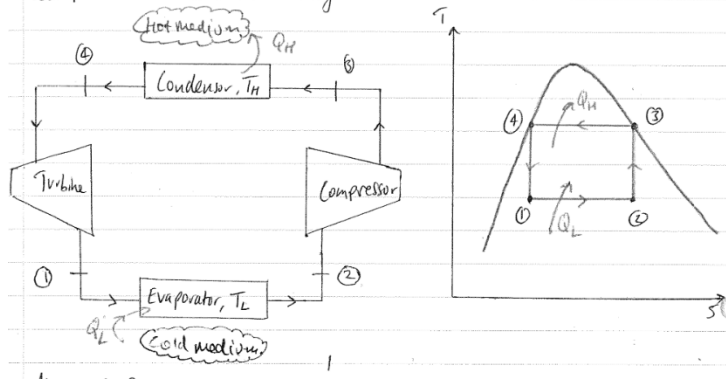 Hot medium
Q_H
④
③
Condensor, T_H
Turbine
Compressor
①
②
Evaporator, T_L
Q_L
Cold medium
T
Q_H
④
③
①
②
Q_L
S